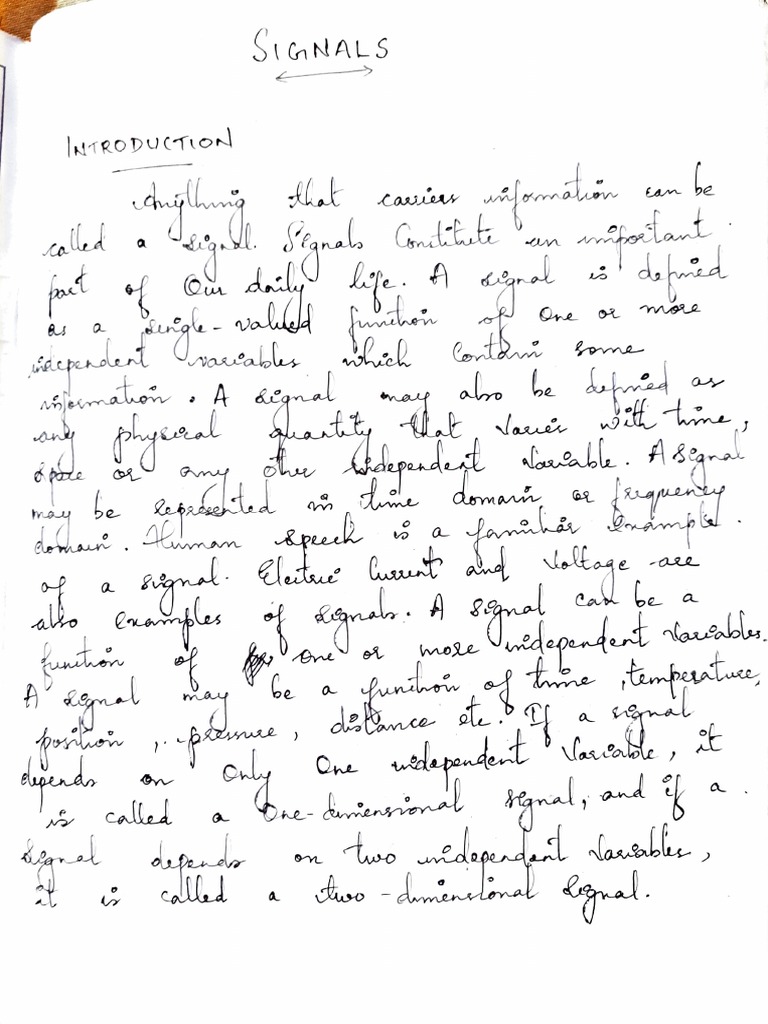 SIGNALS
INTRODUCTION
Anything that carriers information can be
called a signal. Signals Constitute an important
part of Our daily life. A signal is defined
as a single-valued function of One or more
independent variables which Contain some
information. A signal may also be defined as
any physical quantity that Varies with time,
space or any other independent Variable. A signal
may be represented in time domain or frequency
domain. Human speech is a familiar Example.
of a signal. Electric Current and Voltage are
also Examples of signals. A signal can be a
function of one or more independent Variables.
A signal may be a function of time, temperature,
position, pressure, distance etc. If a signal
depends on Only One independent Variable, it
is called a One-dimensional signal, and if a
signal depends on two independent Variables,
it is called a two-dimensional signal.